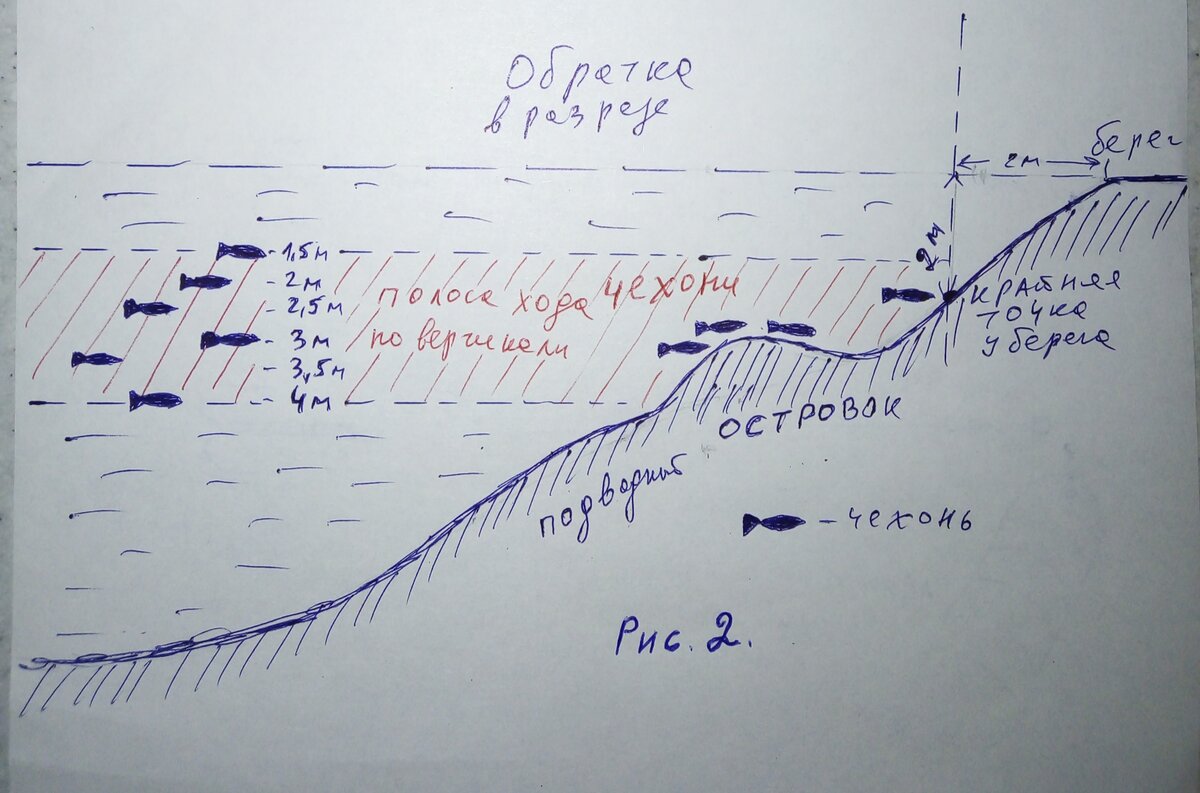 Обратка
в разрезе
берег
2м
2м
1,5м
2м
2,5м
3м
3,5м
4м
полоса хода чехони
по вертикали
крайняя
точка
у берега
подводный островок
- чехонь
Рис. 2.